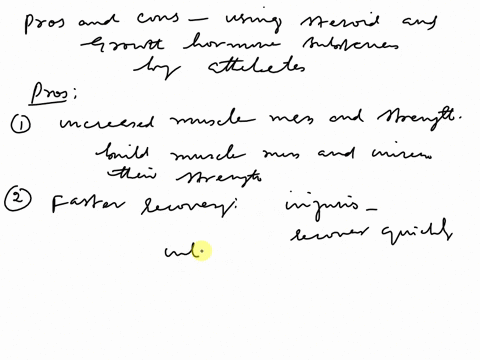 Pros and cons – using steroid and
Growth hormone substances
by athletes
Pros:
① increased muscle mess and strength.
build muscle mess and
their strength
② Faster recovery: injuris –
recover quickly